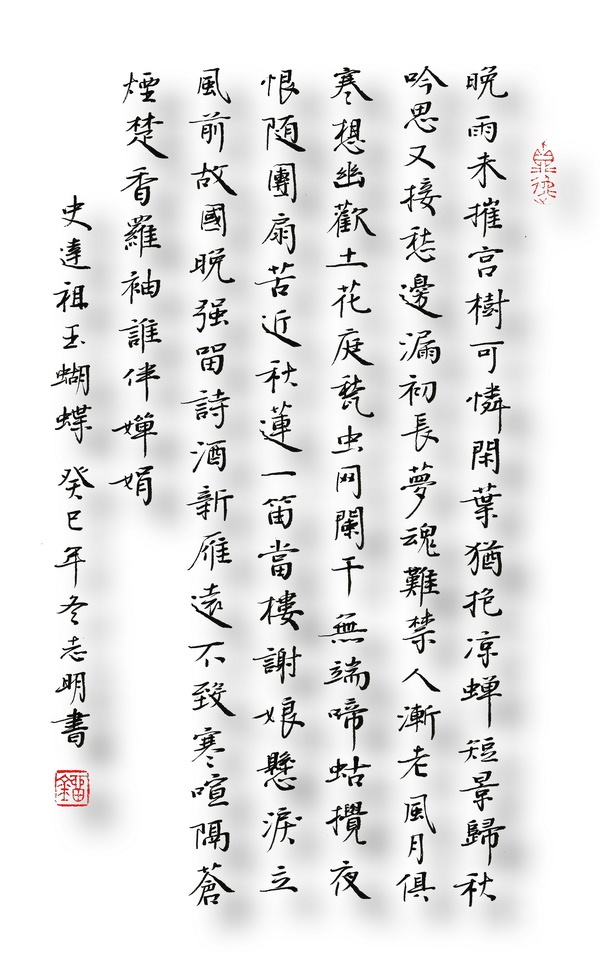 晚雨未摧宮樹可憐閑葉猶抱凉蝉短景歸秋
吟思又接愁邊漏初長夢魂難禁人漸老風月俱
寒想幽歡土花庭甃虫网闌干無端啼蛄攪夜
恨随團扇苦近秋蓮一笛當樓謝娘懸淚立
風前故國晚强留詩酒新雁遠不致寒喧隔蒼
煙楚香羅袖誰伴嬋娟
史達祖玉蝴蝶 癸巳年冬志明書